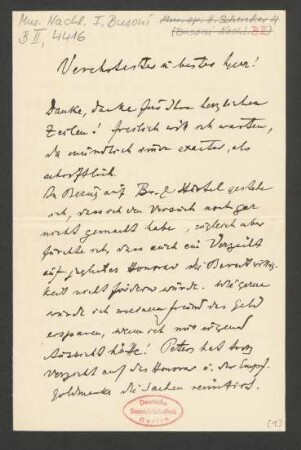 Mus. Nachl. F. Busoni
B II, 4416
Mus. ep. H. Schenker 4
(Busoni-Nachl. B II)
Verehrtester u bester Herr!
Danke, danke für Ihre herzlichen
Zeilen! Freilich will ich warten,
da mündlich immer exacter, als
schriftlich.
In Bezug auf Br. & Härtel gestehe
ich, dass ich den Versuch noch gar
nicht gemacht habe, zugleich aber
fürchte ich, dass auch ein Verzicht
auf jegliches Honorar die Bereitwillig-
keit nicht fördern würde. Wie gerne
würde ich meinem Freund das Geld
ersparen, wenn ich nur irgend
Aussicht hätte! Peters hat trotz
Verzicht auf das Honorar u. der Empf.
Goldmarks die Sachen refüsirt.
Deutsche
Staatsbibliothek
Berlin
[1]